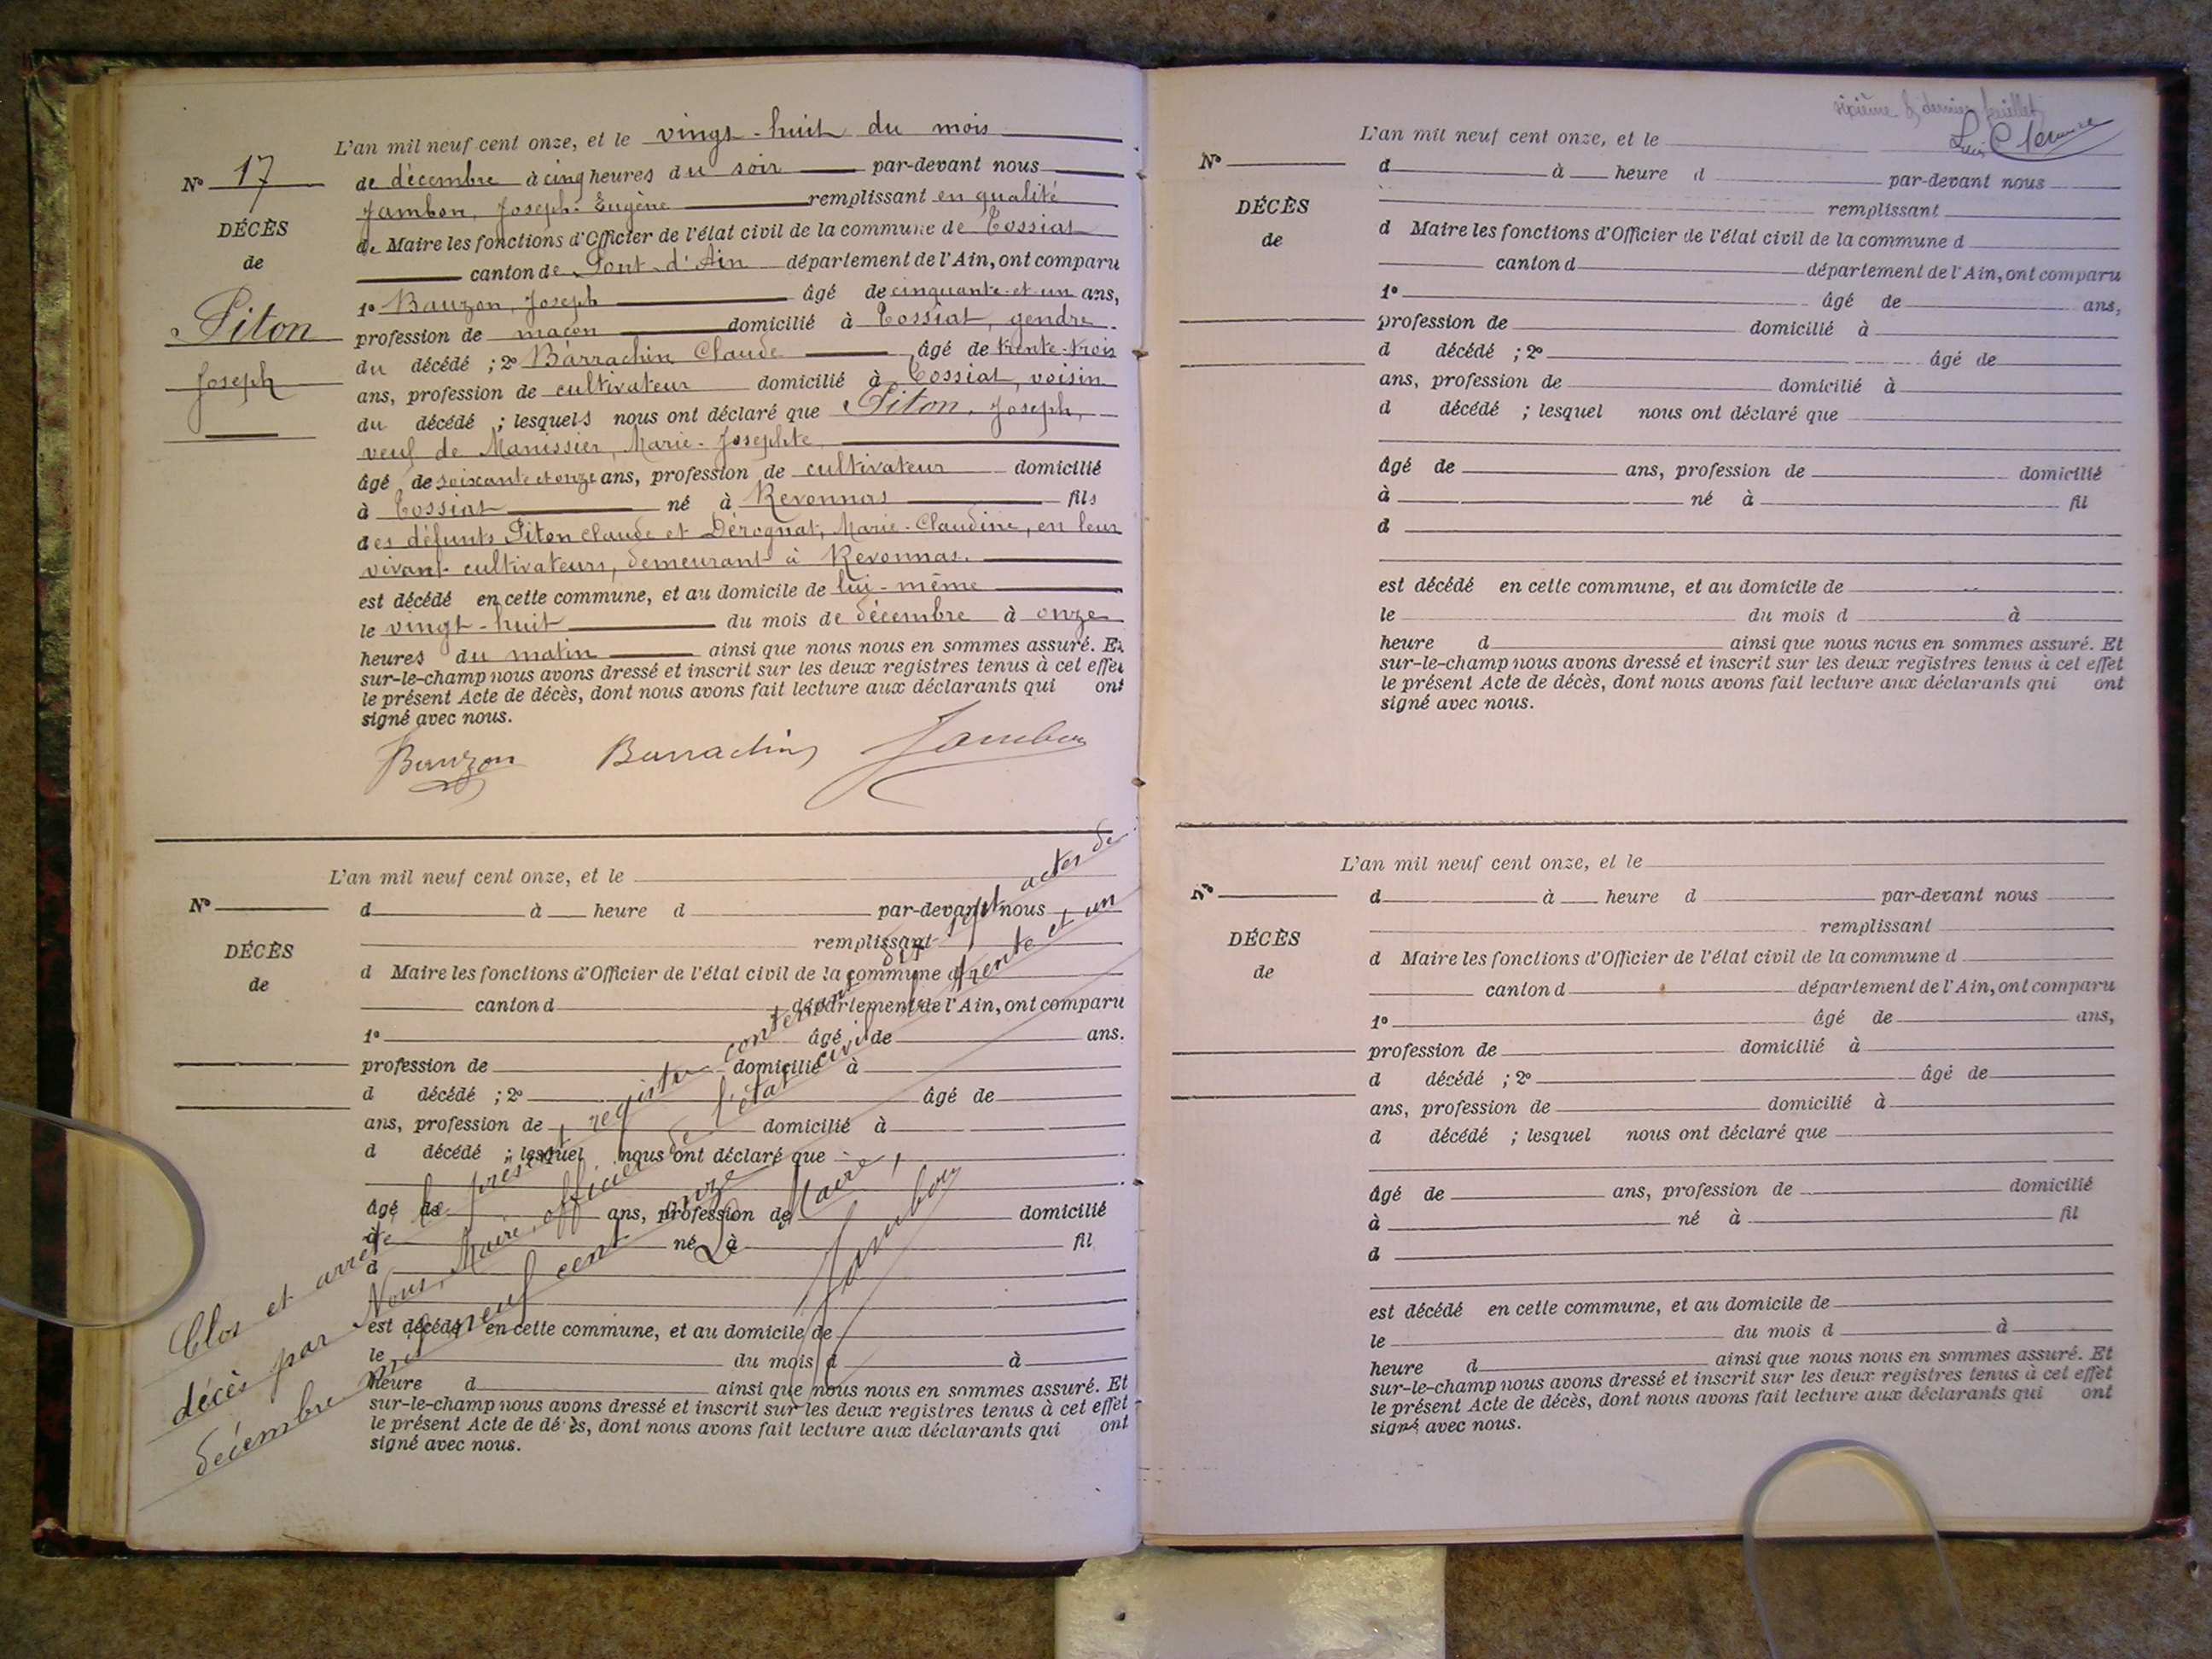 L'an mil neuf cent onze, et le vingt-huit du mois
N° 17
de décembre à cinq heures du soir par-devant nous
Jambon, Joseph-Eugène remplissant en qualité
DÉCÈS
de Maire les fonctions d'Officier de l'état civil de la commune de Tossiat
de
canton de Pont-d'Ain département de l'Ain, ont comparu
1° Bauzon, Joseph âgé de cinquante-et-un ans,
Piton
profession de maçon domicilié à Tossiat, gendre
du décédé ; 2° Barrachin Claude âgé de trente-trois
Joseph
ans, profession de cultivateur domicilié à Tossiat, voisin
du décédé ; lesquels nous ont déclaré que Piton, Joseph,
veuf de Manissier, Marie-Josephte,
âgé de soixante et onze ans, profession de cultivateur domicilié
à Tossiat né à Revonnas fils
des défunts Piton Claude et Dérognat, Marie-Claudine, en leur
vivant cultivateurs, demeurant à Revonnas.
est décédé en cette commune, et au domicile de lui-même
le vingt-huit du mois de décembre à onze
heures du matin ainsi que nous nous en sommes assuré. Et
sur-le-champ nous avons dressé et inscrit sur les deux registres tenus à cet effet
le présent Acte de décès, dont nous avons fait lecture aux déclarants qui ont
signé avec nous.
Bauzon Barrachin Jambon
L'an mil neuf cent onze, et le
N°
d à heure d par-devant nous
remplissant
DÉCÈS
d Maire les fonctions d'Officier de l'état civil de la commune d
de
canton d département de l'Ain, ont comparu
1° âgé de ans.
profession de domicilié à
d décédé ; 2° âgé de
ans, profession de domicilié à
d décédé ; lesquel nous ont déclaré que
âgé de ans, profession de domicilié
à né à fil
d
est décédé en cette commune, et au domicile de
le du mois d à
heure d ainsi que nous nous en sommes assuré. Et
sur-le-champ nous avons dressé et inscrit sur les deux registres tenus à cet effet
le présent Acte de décès, dont nous avons fait lecture aux déclarants qui ont
signé avec nous.
Clos et arrêté le présent registre contenant dix-sept actes de
décès par Nous, Maire, officier de l'état civil le trente et un
décembre mil neuf cent onze
Le Maire,
Jambon
sixième & dernier feuillet
L'an mil neuf cent onze, et le
N°
d à heure d par-devant nous
remplissant
DÉCÈS
d Maire les fonctions d'Officier de l'état civil de la commune d
de
canton d département de l'Ain, ont comparu
1° âgé de ans,
profession de domicilié à
d décédé ; 2° âgé de
ans, profession de domicilié à
d décédé ; lesquel nous ont déclaré que
âgé de ans, profession de domicilié
à né à fil
d
est décédé en cette commune, et au domicile de
le du mois d à
heure d ainsi que nous nous en sommes assuré. Et
sur-le-champ nous avons dressé et inscrit sur les deux registres tenus à cet effet
le présent Acte de décès, dont nous avons fait lecture aux déclarants qui ont
signé avec nous.
L'an mil neuf cent onze, et le
N°
d à heure d par-devant nous
remplissant
DÉCÈS
d Maire les fonctions d'Officier de l'état civil de la commune d
de
canton d département de l'Ain, ont comparu
1° âgé de ans,
profession de domicilié à
d décédé ; 2° âgé de
ans, profession de domicilié à
d décédé ; lesquel nous ont déclaré que
âgé de ans, profession de domicilié
à né à fil
d
est décédé en cette commune, et au domicile de
le du mois d à
heure d ainsi que nous nous en sommes assuré. Et
sur-le-champ nous avons dressé et inscrit sur les deux registres tenus à cet effet
le présent Acte de décès, dont nous avons fait lecture aux déclarants qui ont
signé avec nous.